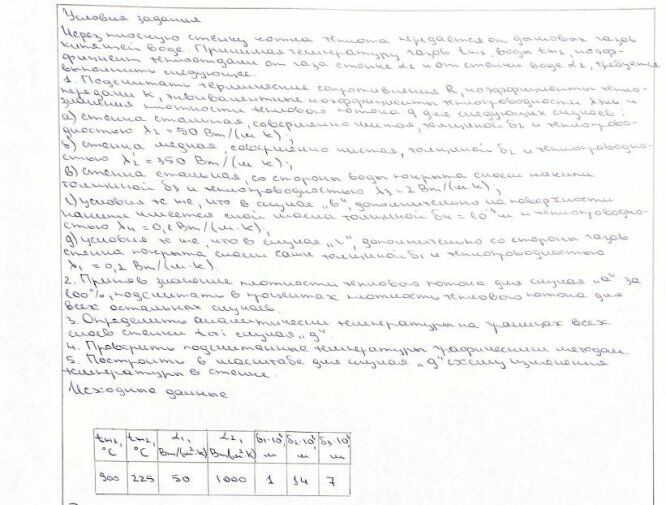 Условия задания
Через плоскую стенку котла теплота передается от дымовых газов
кипящей воде. Принимая температуру газов tж1, воды tж2, коэф-
фициент теплоотдачи от газа стенке α1 и от стенки воде α2, требуется
выполнить следующее.
1. Подсчитать термические сопротивления R, коэффициенты тепло-
передачи k, эквивалентные коэффициенты теплопроводности λэкв и
значения плотности теплового потока q для следующих случаев:
а) стенка стальная, совершенно чистая, толщиной δ2 и теплопрово-
дностью λ2 = 50 Вт/(м·к);
б) стенка медная, совершенно чистая, толщиной δ2 и теплопроводно-
стью λ2' = 350 Вт/(м·к);
в) стенка стальная, со стороны воды покрыта слоем накипи
толщиной δ3 и теплопроводностью λ3 = 2 Вт/(м·к);
г) условия те же, что в случае „в", дополнительно на поверхности
накипи имеется слой масла толщиной δ4 = 10⁻³ м и теплопроводно-
стью λ4 = 0,1 Вт/(м·к);
д) условия те же, что в случае „г", дополнительно со стороны газов
стенка покрыта слоем сажи толщиной δ1 и теплопроводностью
λ1 = 0,2 Вт/(м·к).
2. Приняв значение плотности теплового потока для случая „а" за
100%, подсчитать в процентах плотность теплового потока для
всех остальных случаев.
3. Определить аналитически температуры на границах всех
слоев стенки для случая „д".
4. Проверить подсчитанные температуры графическим методом.
5. Построить в масштабе для случая „д" схему изменения
температуры в стенке.
Исходные данные
tж1, °С tж2, °С α1, Вт/(м²·к) α2, Вт/(м²·к) δ1·10³, м δ2·10³, м δ3·10³, м
900 225 50 1000 1 14 7